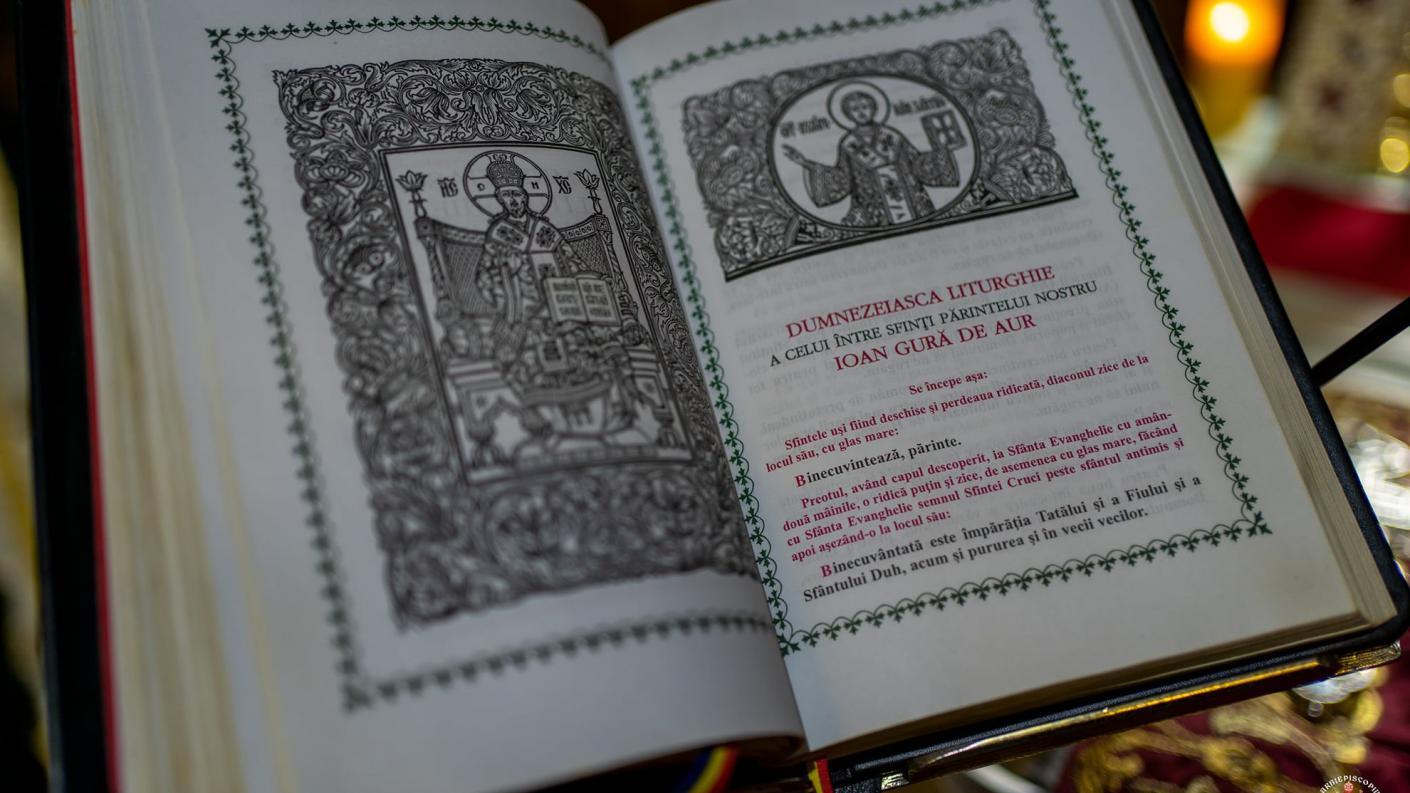 DUMNEZEIASCA LITURGHIE
A CELUI ÎNTRE SFINŢI PĂRINTELUI NOSTRU
IOAN GURĂ DE AUR
Se începe aşa:
Sfintele uşi fiind deschise şi perdeaua ridicată, diaconul zice de la
locul său, cu glas mare:
Binecuvintează, părinte.
Preotul, având capul descoperit, ia Sfânta Evanghelie cu amân-
două mâinile, o ridică puţin şi zice, de asemenea cu glas mare, făcând
cu Sfânta Evanghelie semnul Sfintei Cruci peste sfântul antimis şi
apoi aşezând-o la locul său:
Binecuvântată este împărăţia Tatălui şi a Fiului şi a
Sfântului Duh, acum şi pururea şi în vecii vecilor.